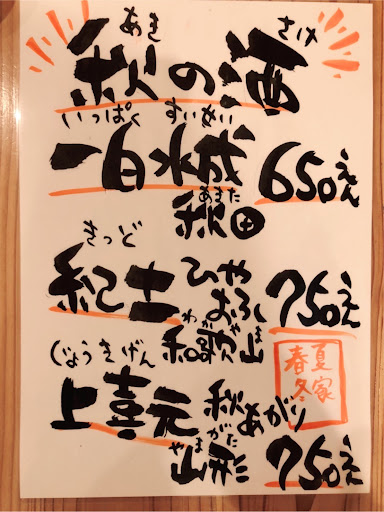 あき さけ
秋の酒
いっぱく すいせい
一白水成 650えん
あきた
秋田
きっど
紀土 ひや
おろし 750えん
わかやま
和歌山
じょうきげん
上喜元 秋あがり
やまがた
山形 750えん
夏家
春冬